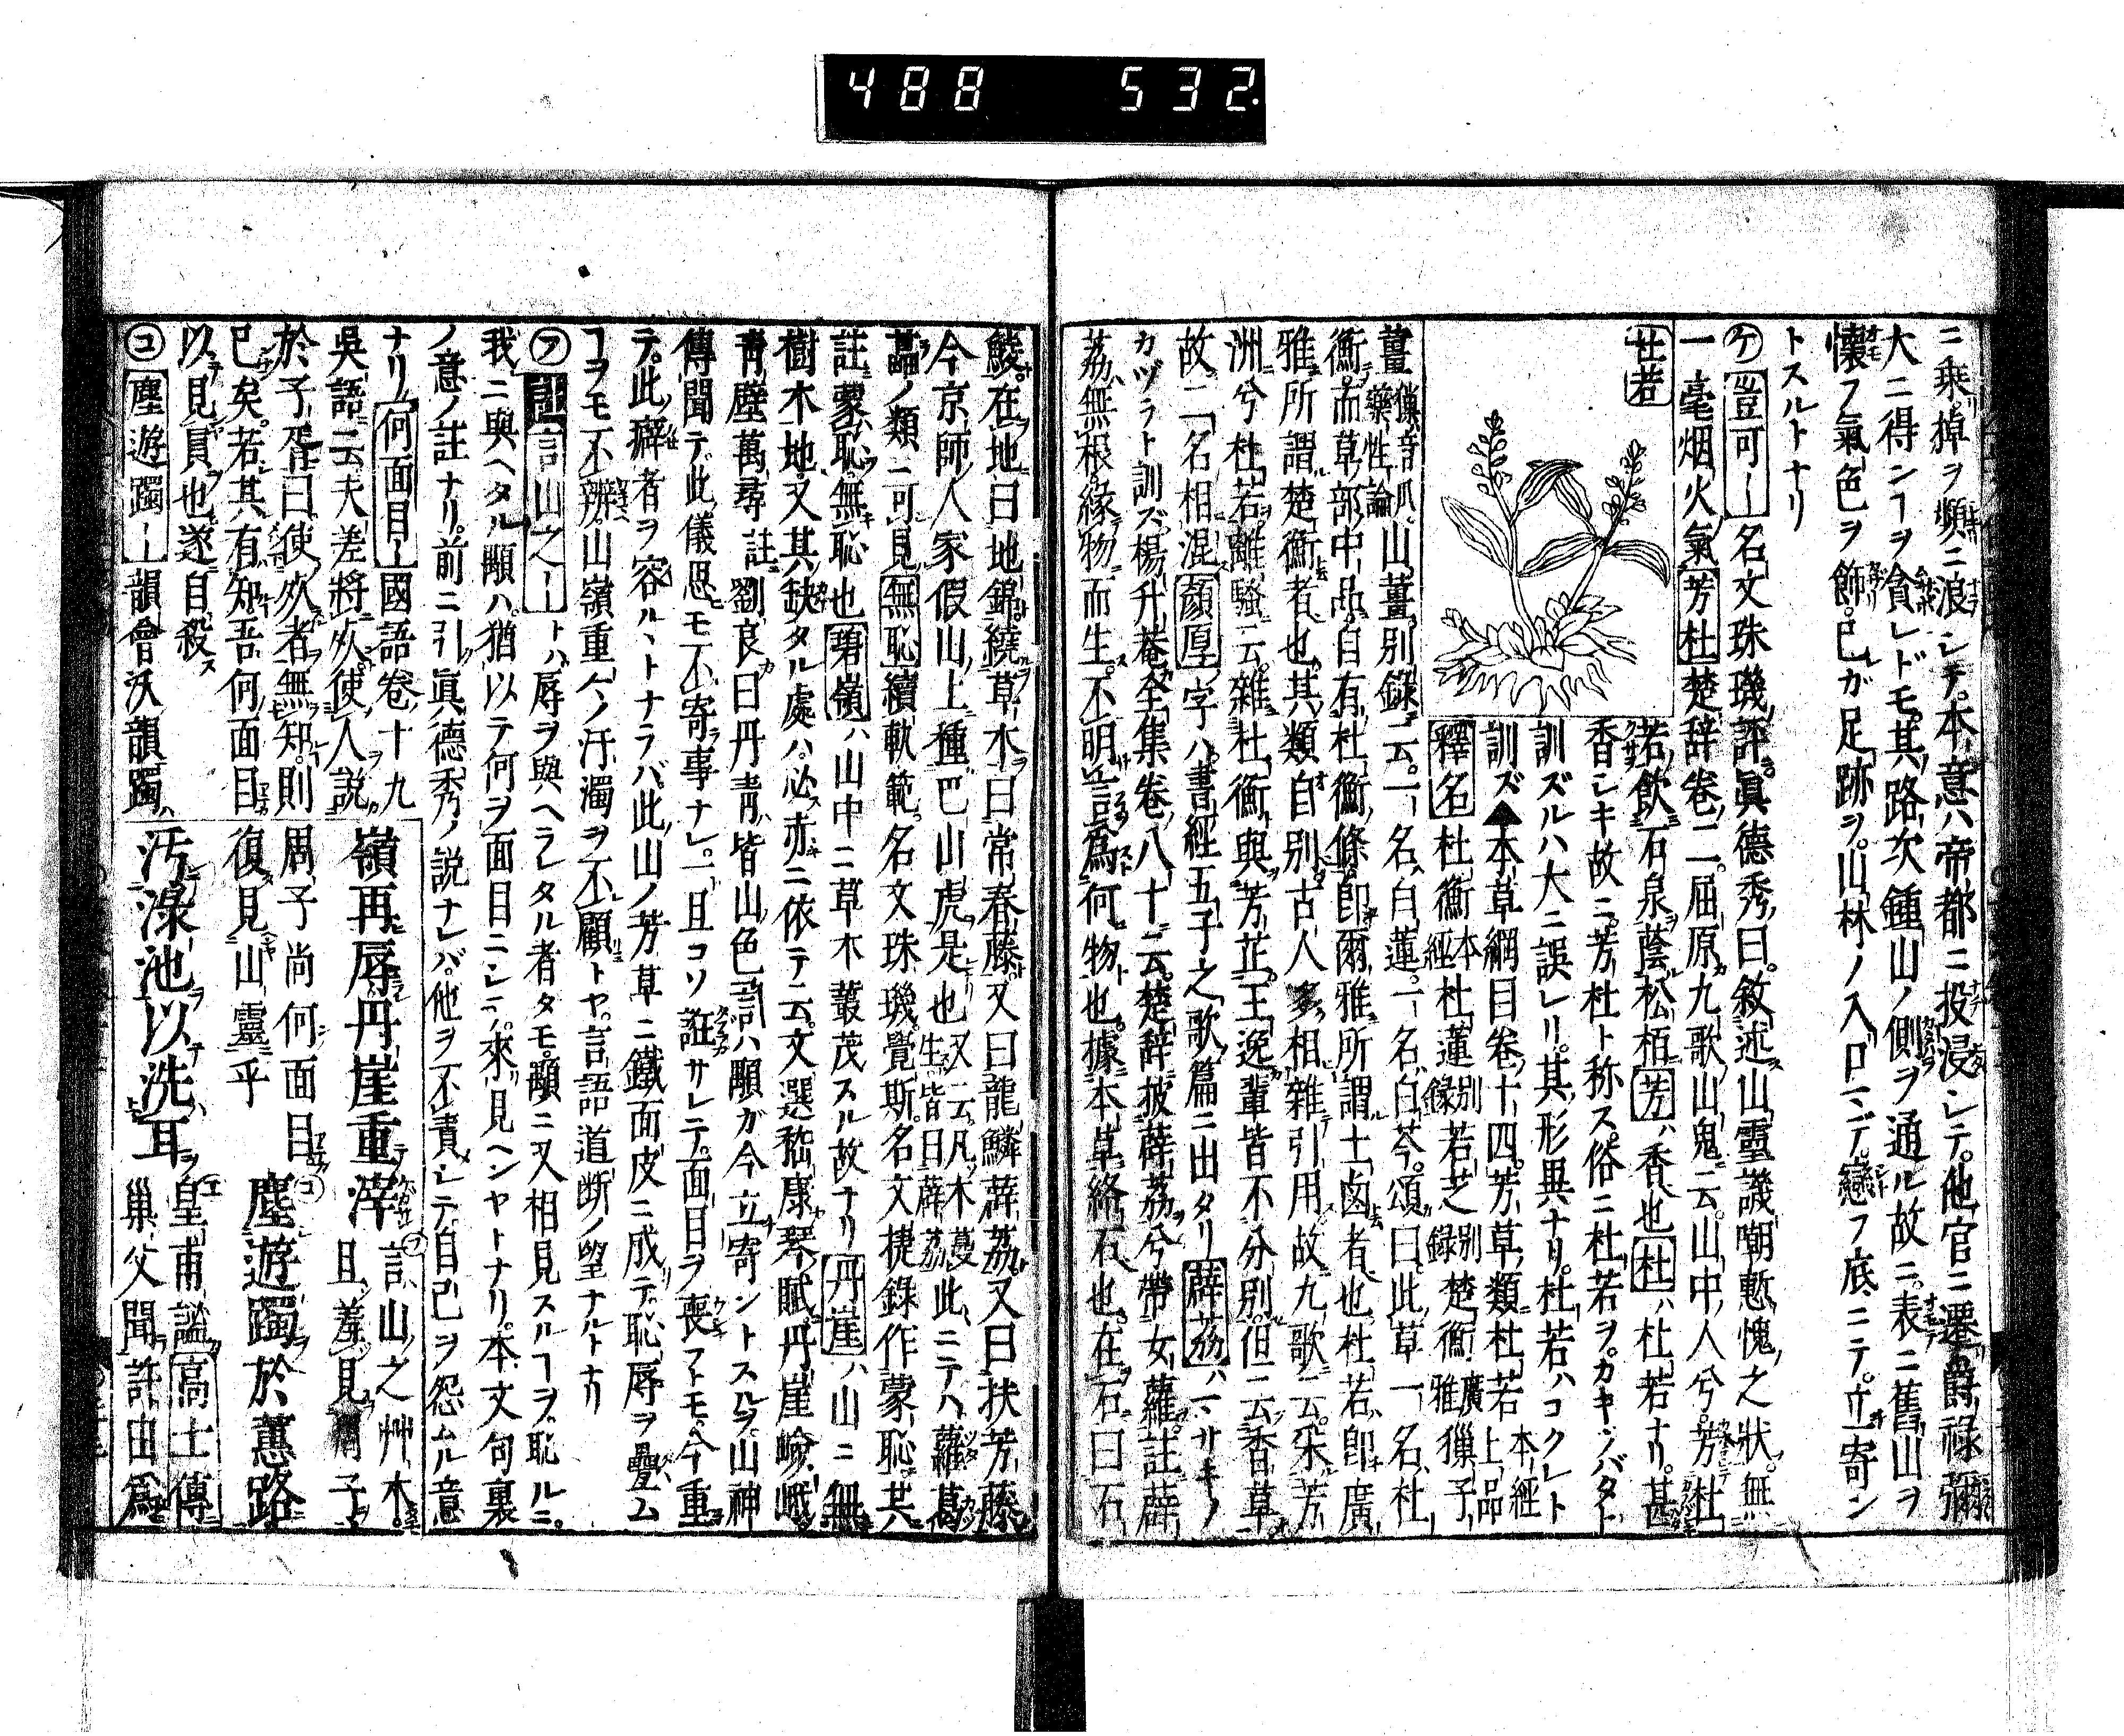 488 532.
ニ乗掉ヲ頻ニ浪シテ本意ハ帝都ニ投浸シテ他官ニ遷爵禄彌
大ニ得ンヿヲ貪レドモ其路次鍾山ノ側ヲ通ル故ニ表ニ舊山ヲ
懐フ氣色ヲ飾己ガ足跡ヲ山林ノ入口マデ戀フ底ニテ立寄ン
トスルトナリ
ケ豈可ー名文珠璣評眞德秀曰敘述山靈譏嘲慙愧之狀無
一毫烟火氣芳杜楚辞卷二屈原九歌山鬼云山中人兮芳杜
杜若
若飲石泉蔭松栢芳ハ香也杜ハ杜若ナリ甚
香シキ故ニ芳杜ト称ス俗ニ杜若ヲカキツバタト
訓ズルハ大ニ誤レリ其形異ナリ杜若ハコクレト
訓ズ▲本草綱目卷十四芳草類杜若本經上品
釋名杜衡本經杜蓮別録若芝別録楚衡廣雅獵子
薑藥性論山薑別錄云一名白蓮一名白芩頌曰此草一名杜
衡而草部中品自有杜衡條卽爾雅所謂土鹵者也杜若卽廣
雅所謂楚衡者也其類自別古人多相雜引用故九歌云采芳
洲兮杜若離騷云雜杜衡與芳芷王逸輩皆不分別但云香草
故二名相混顔厚字ハ書經五子之歌篇ニ出タリ薜茘ハマサキノ
カヅラト訓ズ楊升菴全集卷八十云楚辞披薜茘兮帶女蘿註薜
茘無根縁物而生不明言爲何物也據本草絡石也在石曰石
鯪在地曰地錦繞草木曰常春藤又曰龍鱗薜茘又曰扶芳藤
今京師人家假山上種巴山虎是也又云凡木蔓生皆曰薜茘此ニテハ蘿葛
藟ノ類ニ可見無恥續軌範名文珠璣覺斯名文捷錄作蒙恥其
註蒙恥無恥也碧嶺ハ山中ニ草木叢茂スル故ナリ丹崖ハ山ニ無
樹木地又其缺タル處ハ必赤ニ依テ云文選嵇康琴賦丹崖嶮巇
青壁萬尋註劉良曰丹青皆山色言ハ顒ガ今立寄ントスルヲ山神
傳聞テ此儀思モ不寄事ナレ一旦コソ誑サレニテ面目ヲ喪フトモ今重
テ此癖者ヲ容ルヽトナラバ此山ノ芳草ニ鐵面皮ニ成テ恥辱ヲ疊ム
ヿヲモ不辨山嶺重〱ノ汗濁ヲ不顧トヤ言語道断ノ望ナルトナリ
フ言山之ートハ辱ヲ與ヘラレタル者タモ顒ニ又相見スルヿヲ恥ルニ
我ニ與ヘタル顒ハ猶以テ何ヲ面目ニシテ來見ヘンヤトナリ本文句裏
ノ意ノ註ナリ前ニ引眞德秀ノ説ナレバ他ヲ不責シテ自己ヲ怨ムル意
ナリ何面目ー國語卷十九
吳語云夫差將死使人說
於子胥曰使死者無知則
已矣若其有知吾何面目
以見員也遂自殺
コ塵遊躅ー韻會沃韻躅
嶺再辱丹崖重滓言山之艸木且羞見周子
周子尚何面目復見山靈乎塵遊躅於蕙路
汚淥池以洗耳皇甫謐高士傳巢父聞許由爲